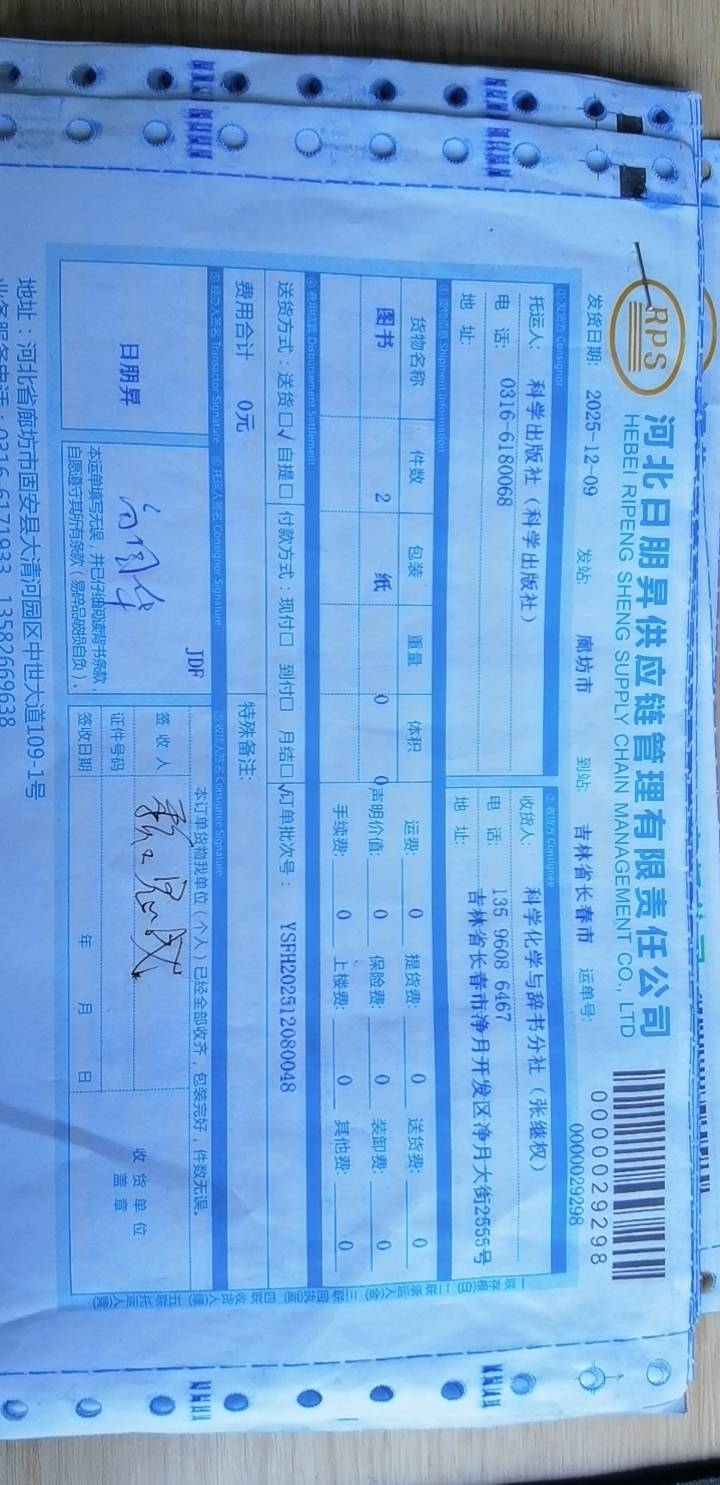 RPS
河北日朋昇供应链管理有限责任公司
HEBEI RIPENG SHENG SUPPLY CHAIN MANAGEMENT CO., LTD
0000029298
发货日期: 2025-12-09 发站: 廊坊市 到站: 吉林省长春市 运单号: 0000029298
①发货方 Consignor ②收货方 Consignee
托运人: 科学出版社(科学出版社) 收货人: 科学化学与辞书分社(张继权)
电 话: 0316-6180068 电 话: 135 9608 6467
地 址: 地 址: 吉林省长春市净月开发区净月大街2555号
③货物信息 Shipment Information
货物名称 件数 包装 重量 体积 运费: 0 提货费: 0 送货费: 0
图书 2 纸 0 0 声明价值: 0 保险费: 0 装卸费: 0
手续费: 0 上楼费: 0 其他费: 0
④费用结算 Disbursement Settlement
送货方式:送货□√ 自提□ 付款方式:现付□ 到付□ 月结□√ 订单批次号: YSFH202512080048
费用合计 0元 特殊备注:
⑤经办人签名 Transactor Signature ⑥托运人签名 Consignor Signature ⑦收货人签名 Consignee Signature
日朋昇
JDF
本运单填写无误,并已仔细阅读背书条款,
自愿遵守其所有条款(易碎品破损自负)。
本订单货物我单位(个人)已经全部收齐,包装完好,件数无误。
签 收 人
证件号码
签收日期 年 月 日
收 货 单 位
盖 章
一联存根(白) 二联承运人(金) 三联回执(蓝) 四联收货人(绿) 五联托运人(黄)
地址:河北省廊坊市固安县大清河园区中世大道109-1号
业务服务电话:0316-6171933 13582669638